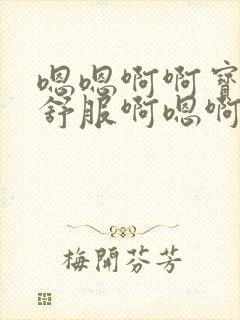 嗯嗯啊啊宝
舒服啊嗯啊
梅開芬芳